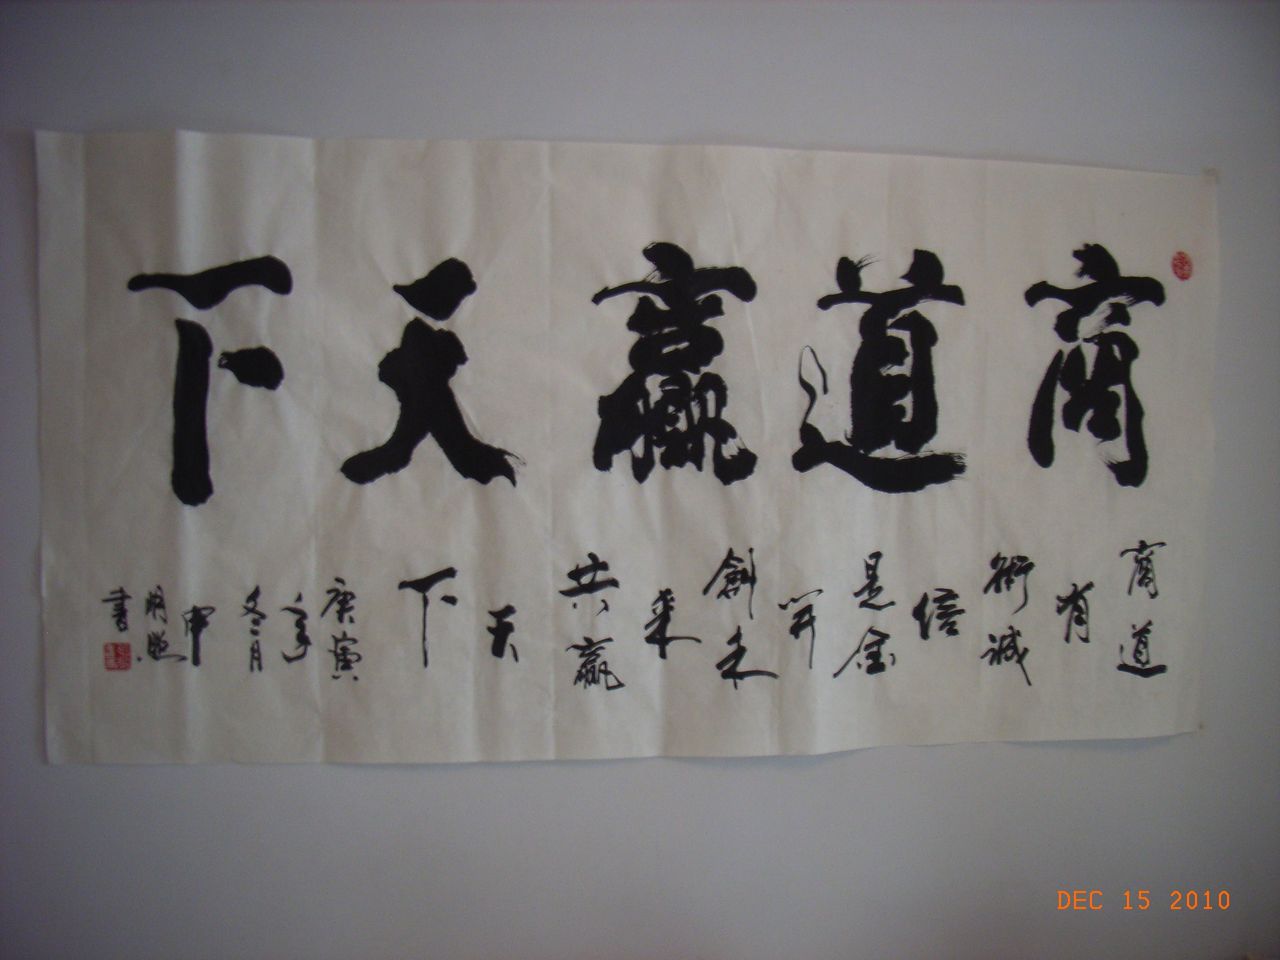 商道贏天下
商道有術誠信是金開創未來共贏天下
庚寅年冬月申明照書
DEC 15 2010